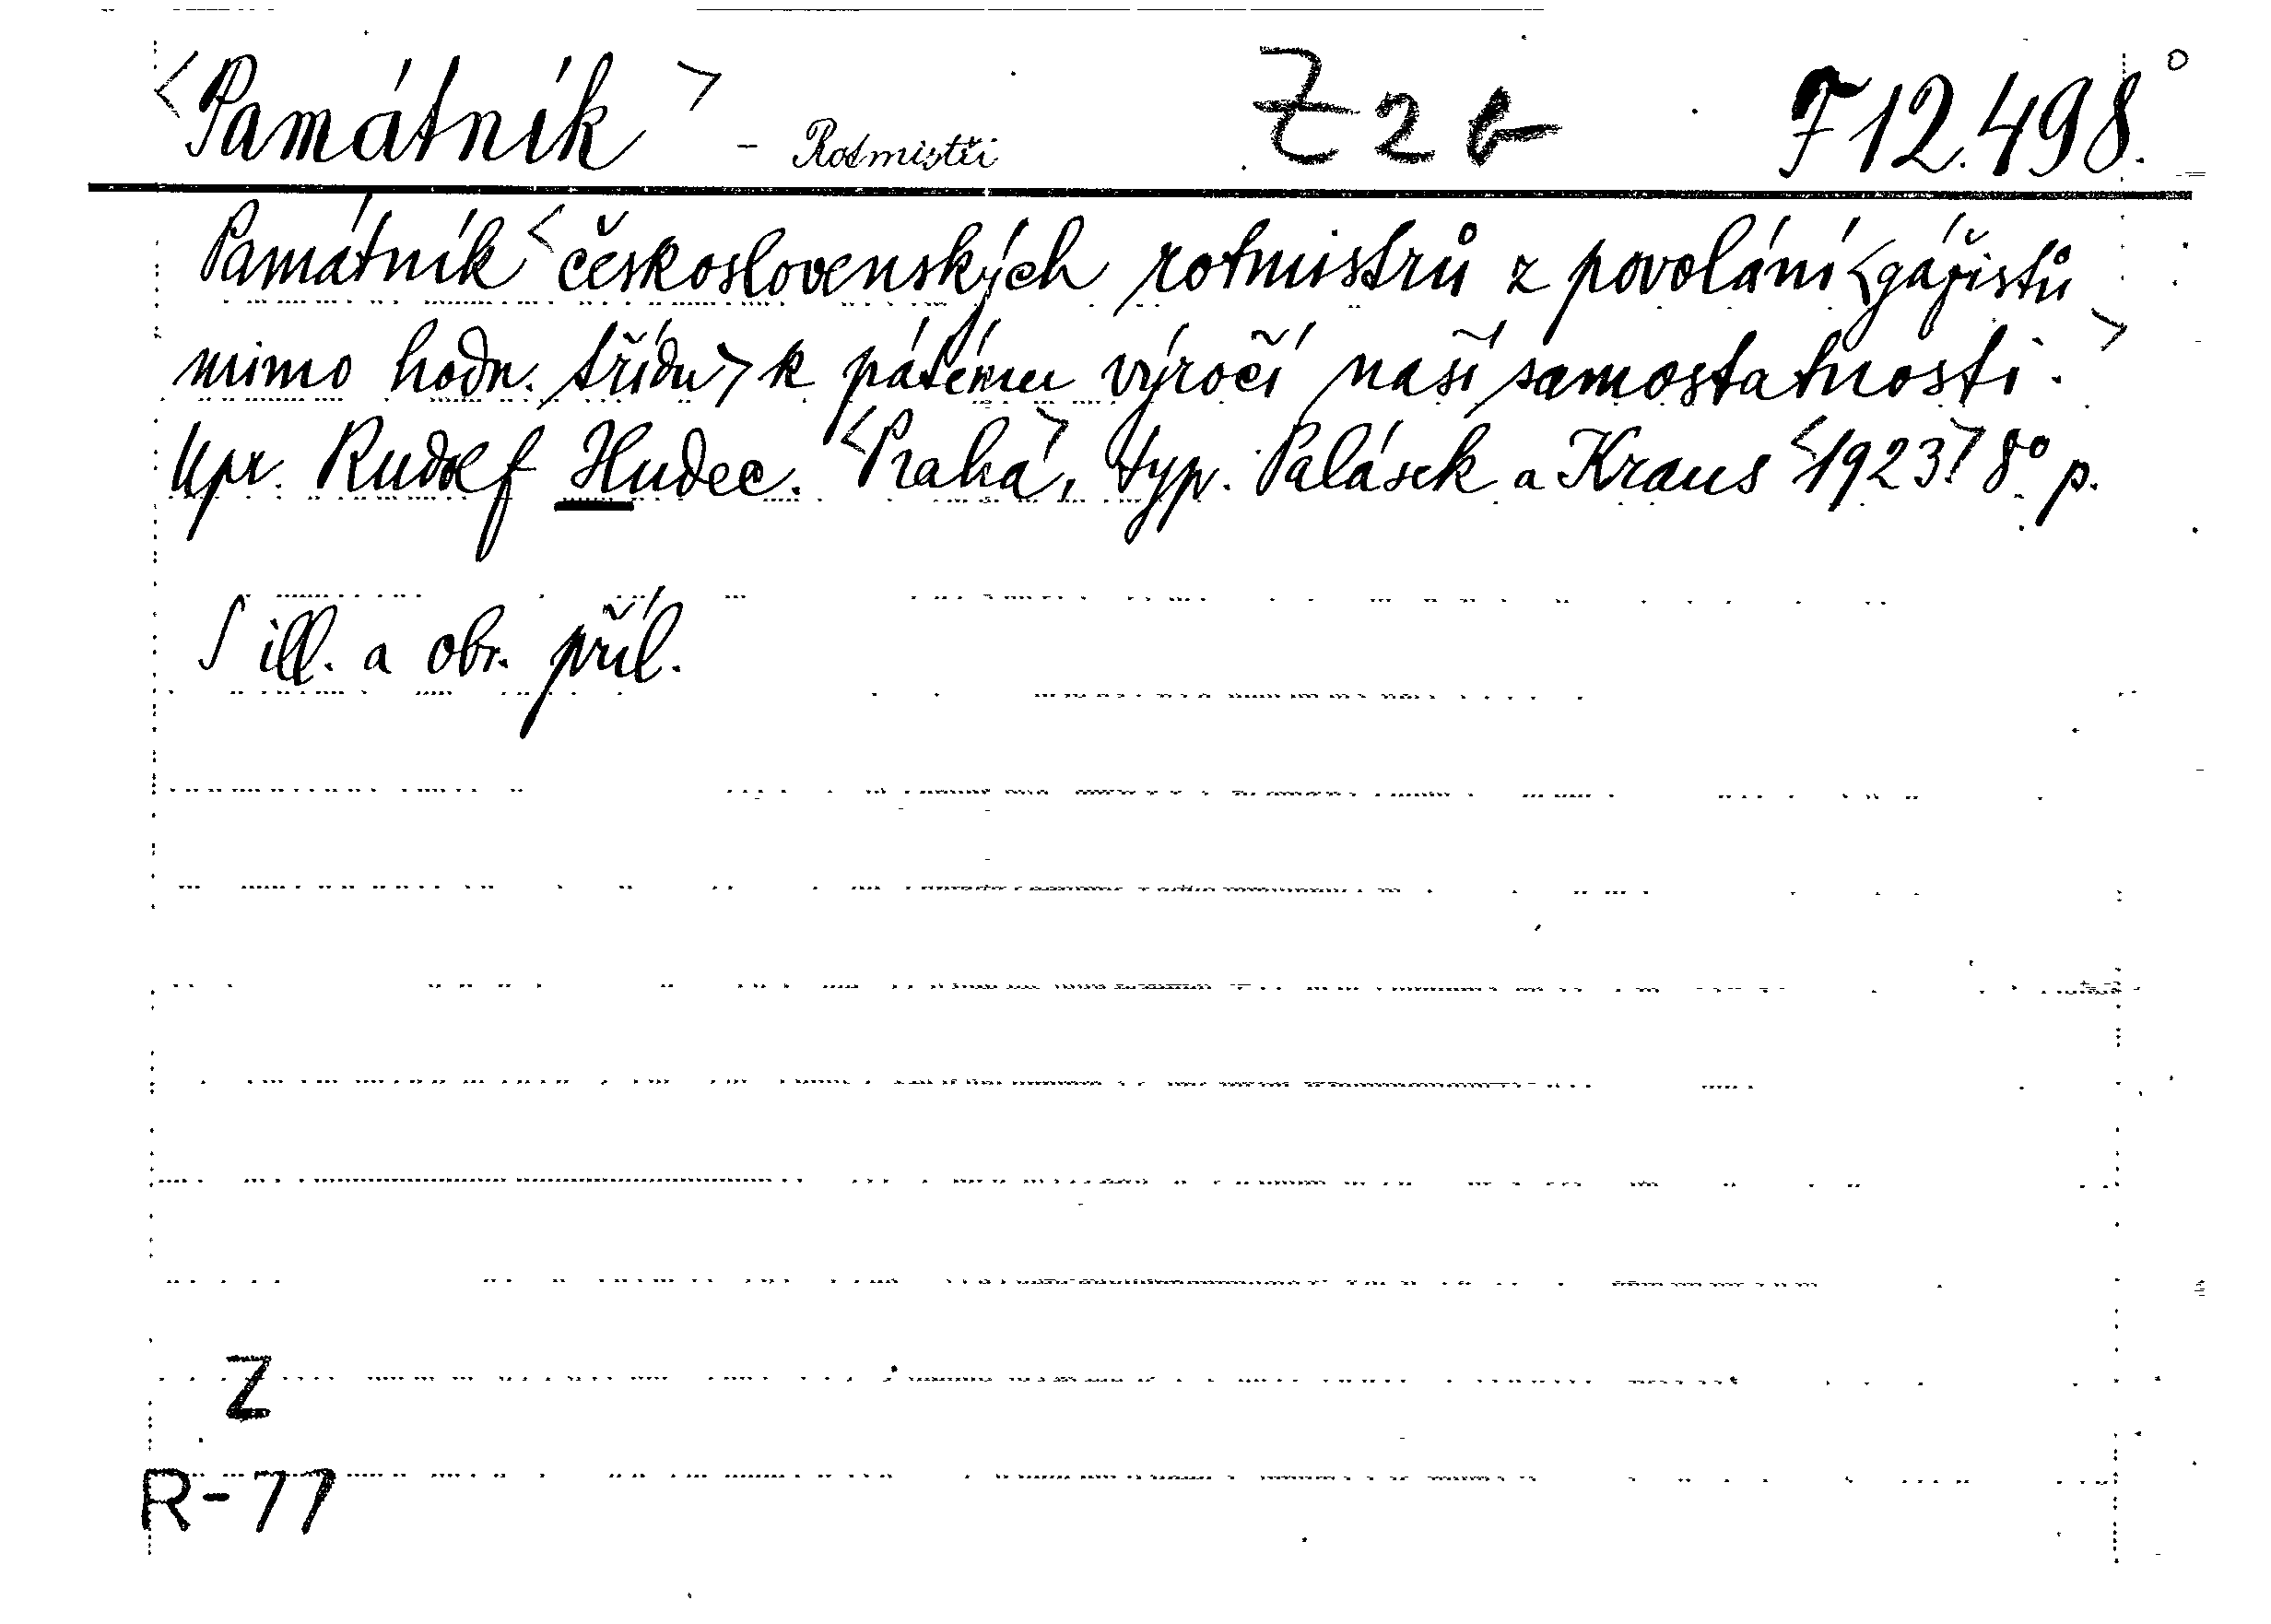 <Památník> - Rotmistři Z 2 b F 12.498.°
Památník <československých rotmistrů z povolání <gážistů
mimo hodn. třídu> k pátému výročí naší samostatnosti.>
Upr. Rudolf Hudec. <Praha>, typ. Palásek a Kraus <1923> 8° p.
S ill. a obr. příl.
Z
R-77